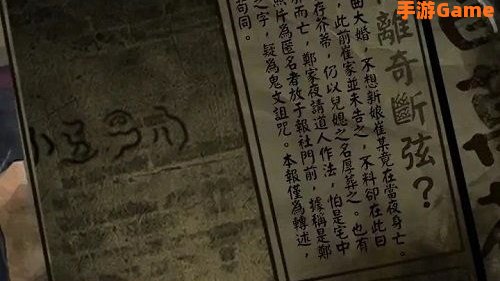 手游Game
離奇斷弦?
曲大婚,不想新娘崔某竟在當夜身亡。
此前崔家並未告之,不料卻在此日
存芥蒂,仍以兒媳之名厚葬之。也有
而亡,鄭家夜請道人作法,怕是宅中
照片為匿名者放于報社門前,據稱是鄭
之字,疑為鬼文詛咒。本報僅為轉述,
苟同。